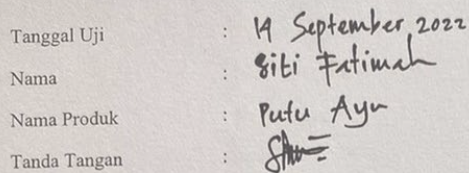 Tanggal Uji : 14 September 2022
Nama : Siti Fatimah
Nama Produk : Putu Ayu
Tanda Tangan :